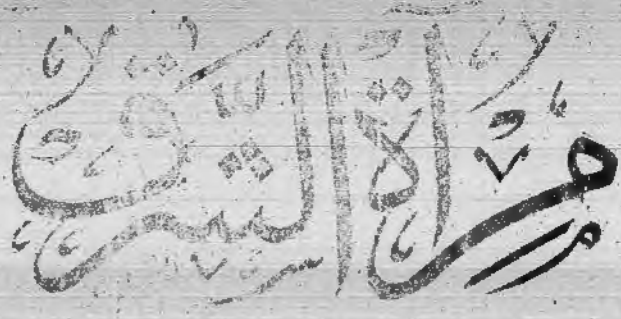 مرآة الشرق